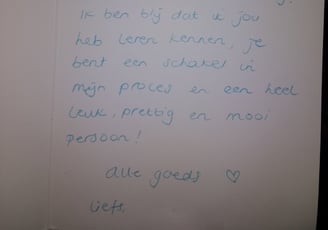 Ik ben blij dat ik jou
heb leren kennen, je
bent een schakel in
mijn proces en een heel
leuk, prettig en mooi
persoon!
Alle goeds ♡
Liefs,